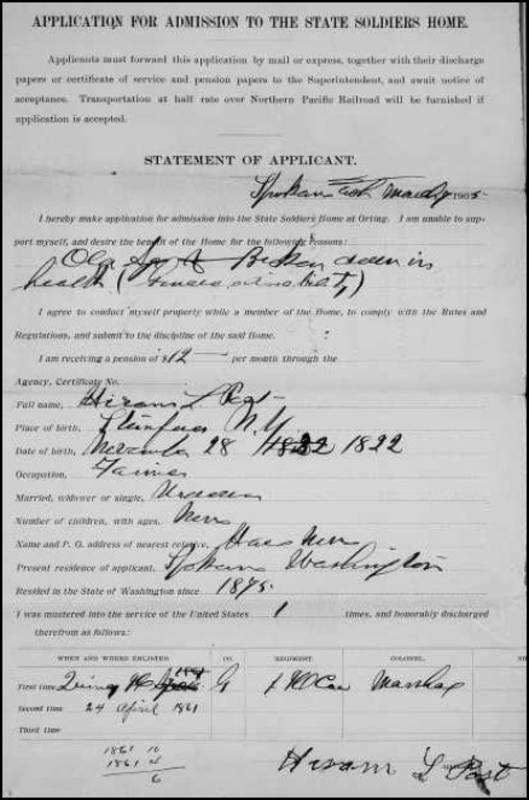 APPLICATION FOR ADMISSION TO THE STATE SOLDIERS HOME.
Applicants must forward this application by mail or express, together with their discharge
papers or certificate of service and pension papers to the Superintendent, and await notice of
acceptance. Transportation at half rate over Northern Pacific Railroad will be furnished if
application is accepted.
STATEMENT OF APPLICANT.
Spokane Wash March 1905
I hereby make application for admission into the State Soldiers Home at Orting. I am unable to sup-
port myself, and desire the benefit of the Home for the following reasons:
Old Age & Broken down in
health (
I agree to conduct myself properly while a member of the Home, to comply with the Rules and
Regulations, and submit to the discipline of the said Home.
I am receiving a pension of $12 per month through the
Agency, Certificate No.
Full name, Hiram L. Post
Place of birth, N.Y.
Date of birth, November 28 1822 1822
Occupation, Farmer
Married, widower or single,
Number of children, with ages, None
Name and P. O. address of nearest relative, Has None
Present residence of applicant, Spokane Washington
Resided in the State of Washington since 1895
I was mustered into the service of the United States 1 times, and honorably discharged
therefrom as follows:
WHEN AND WHERE ENLISTED. CO. REGIMENT. COLONEL.
First time Quincy Ill G 1 Mo Cav Marshal
Second time 24 April 1861
Third time
1861 10
1861 4
6
Hiram L Post